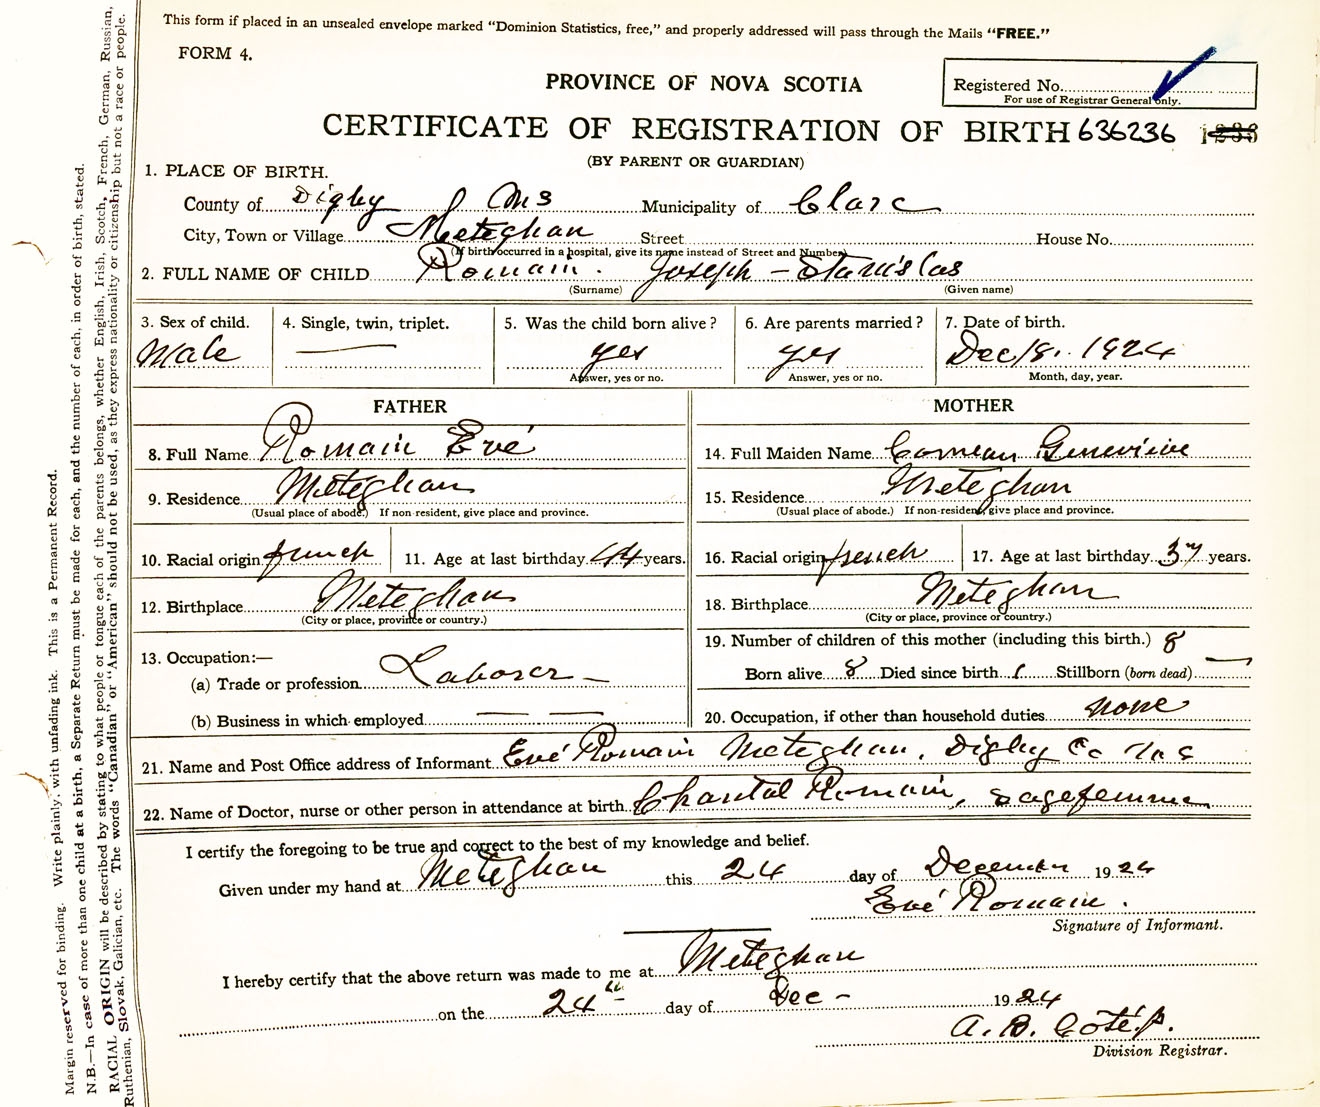 This form if placed in an unsealed envelope marked "Dominion Statistics, free," and properly addressed will pass through the Mails "FREE."
FORM 4.
PROVINCE OF NOVA SCOTIA
Registered No.
For use of Registrar General only.
CERTIFICATE OF REGISTRATION OF BIRTH 636236
(BY PARENT OR GUARDIAN)
1. PLACE OF BIRTH.
County of Digby NS Municipality of Clare
City, Town or Village Meteghan Street House No.
(If birth occurred in a hospital, give its name instead of Street and Number)
2. FULL NAME OF CHILD (x) Romain. Joseph - Stanislas
(Surname) (Given name)
3. Sex of child. 4. Single, twin, triplet. 5. Was the child born alive? 6. Are parents married? 7. Date of birth.
Male yes yes Dec 18. 1924
Answer, yes or no. Answer, yes or no. Month, day, year.
FATHER MOTHER
8. Full Name Romain Evé 14. Full Maiden Name Comeau Genevieve
9. Residence Meteghan 15. Residence Meteghan
(Usual place of abode.) If non-resident, give place and province. (Usual place of abode.) If non-resident, give place and province.
10. Racial origin french 11. Age at last birthday 44 years. 16. Racial origin french 17. Age at last birthday 37 years.
12. Birthplace Meteghan 18. Birthplace Meteghan
(City or place, province or country.) (City or place, province or country.)
13. Occupation:— 19. Number of children of this mother (including this birth.) 8
(a) Trade or profession Laborer Born alive 8 Died since birth 1 Stillborn (born dead) —
(b) Business in which employed — — 20. Occupation, if other than household duties none
21. Name and Post Office address of Informant Evé Romain Meteghan, Digby Co N S
22. Name of Doctor, nurse or other person in attendance at birth Chantal Romain, sagefemme
I certify the foregoing to be true and correct to the best of my knowledge and belief.
Given under my hand at Meteghan this 24 day of December 1924
Evé Romain.
Signature of Informant.
I hereby certify that the above return was made to me at Meteghan
on the 24th day of Dec - 1924
A. B. Coté p.
Division Registrar.
Margin reserved for binding. Write plainly, with unfading ink. This is a Permanent Record.
N.B.—In case of more than one child at a birth, a Separate Return must be made for each, and the number of each, in order of birth, stated.
RACIAL ORIGIN will be described by stating to what people or tongue each of the parents belongs, whether English, Irish, Scotch, French, German, Russian,
Ruthenian, Slovak, Galician, etc. The words "Canadian" or "American" should not be used, as they express nationality or citizenship but not a race or people.